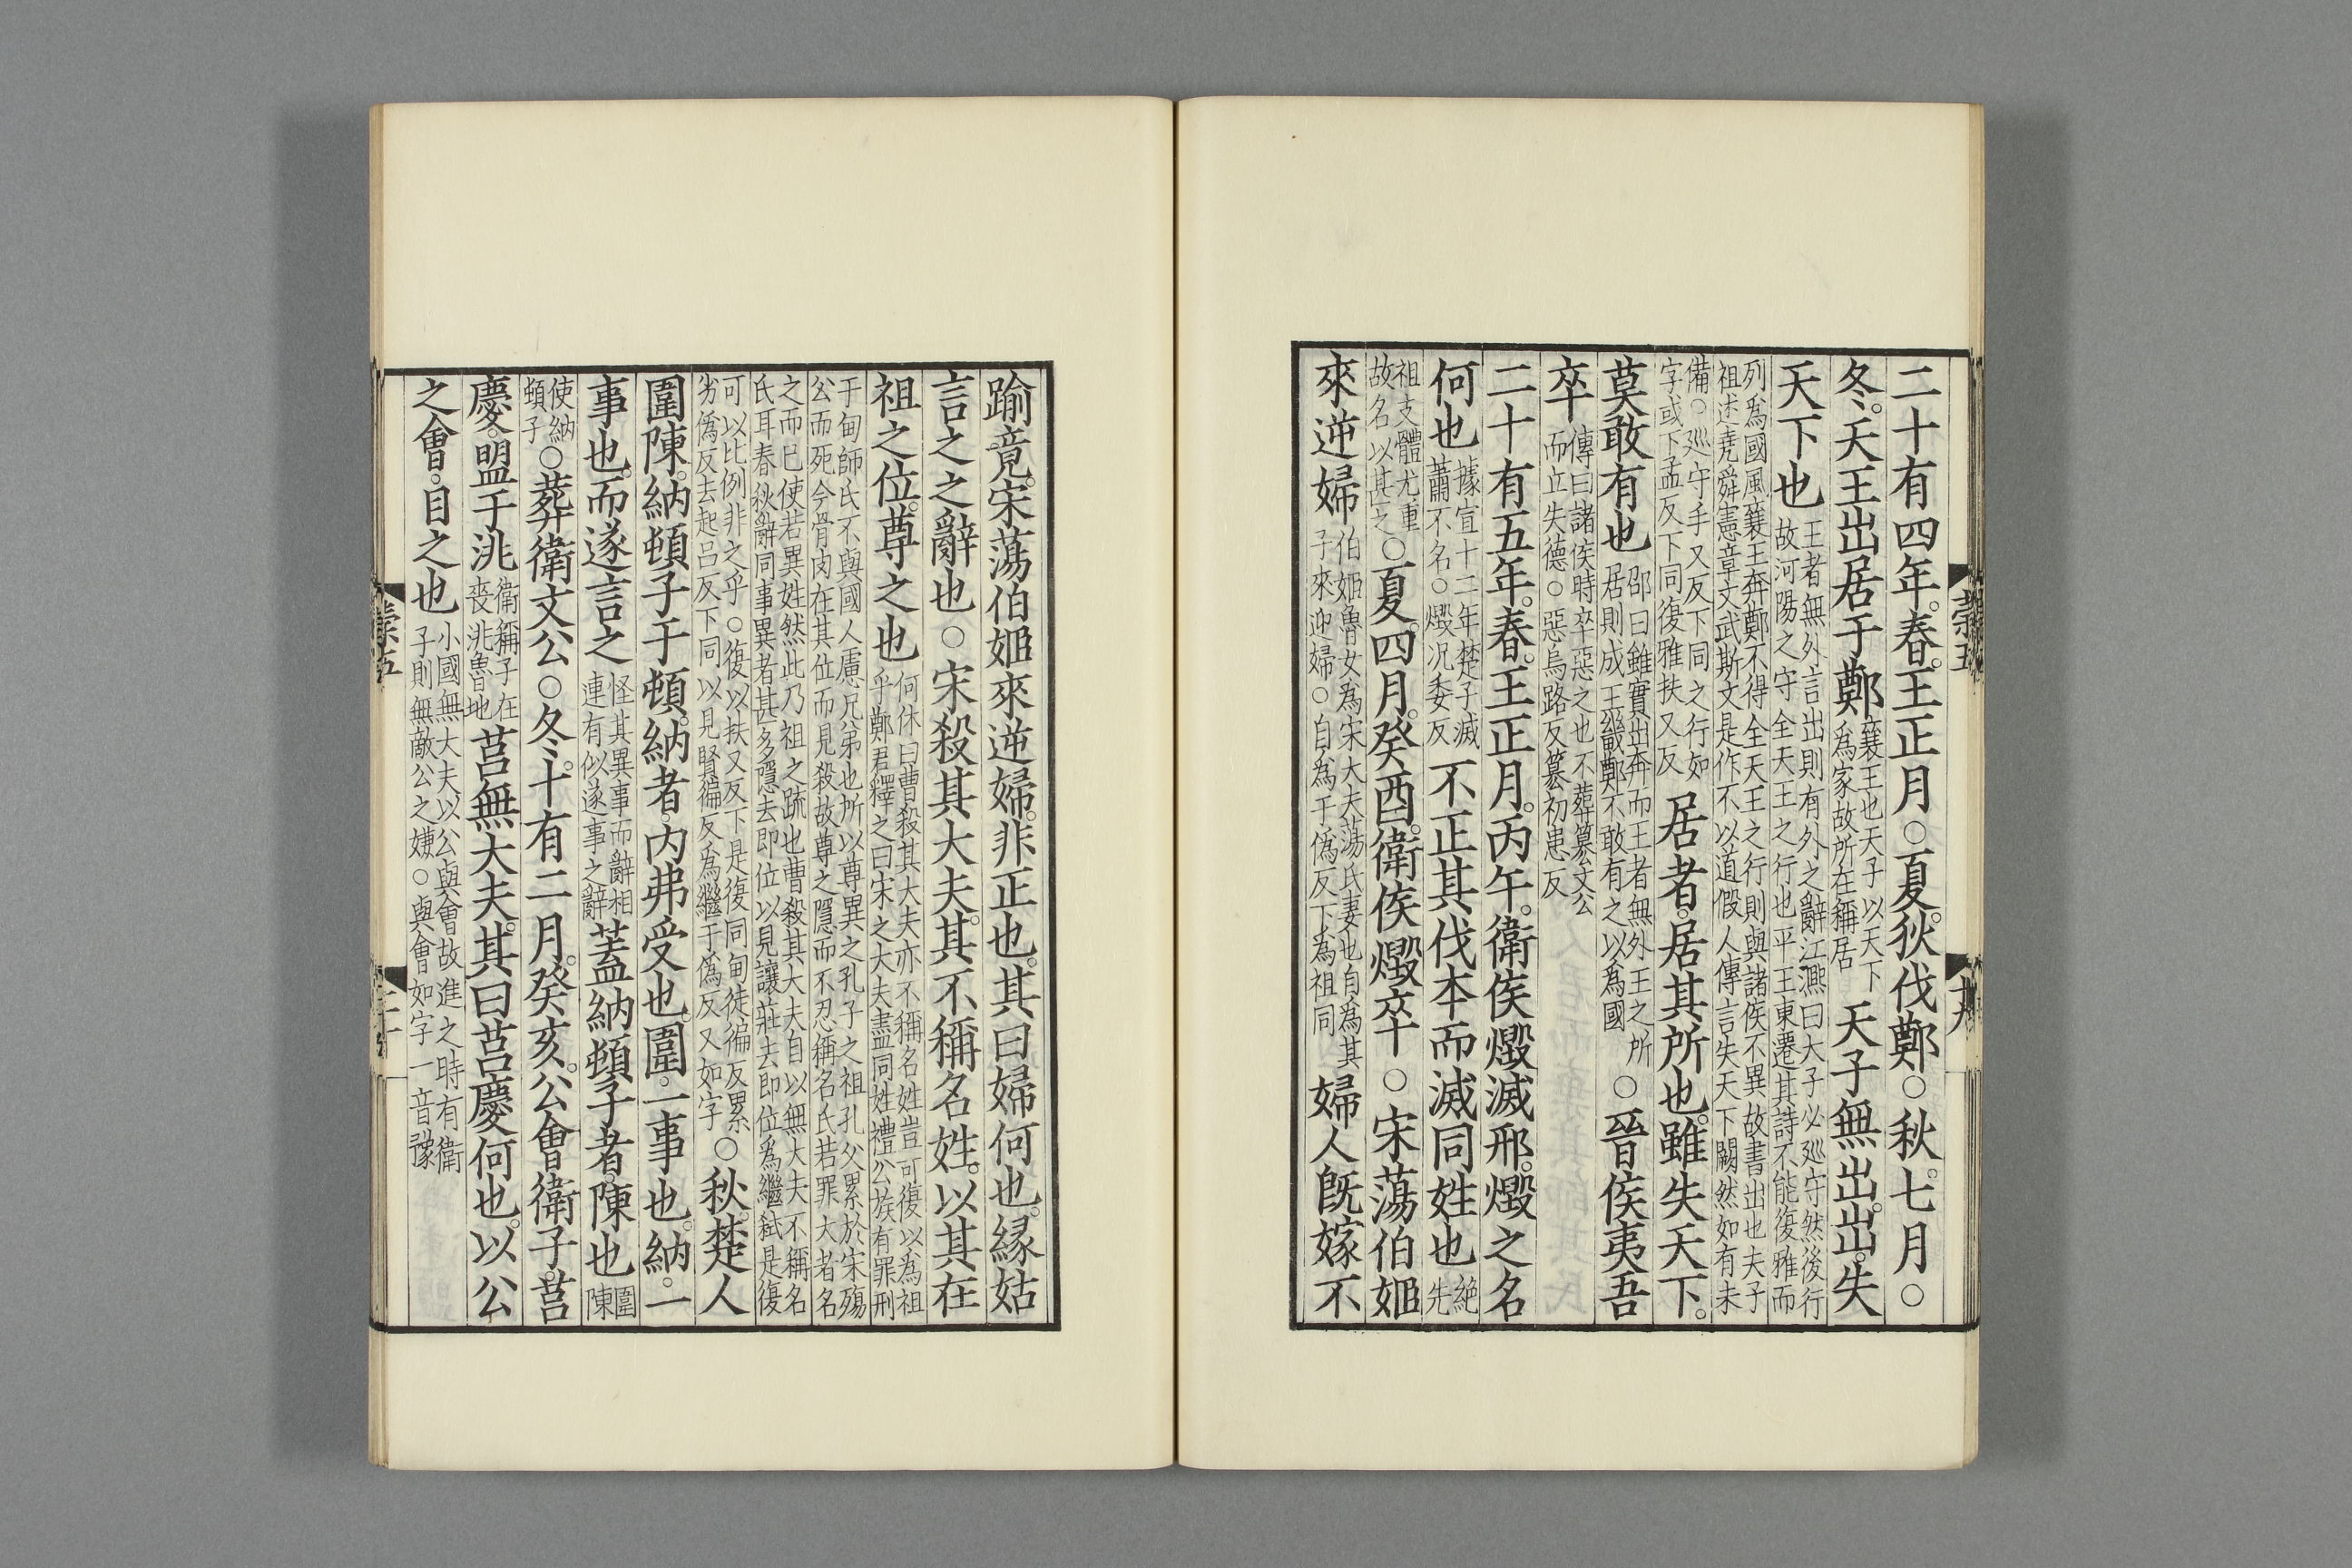 二十有四年。春。王正月○夏。狄伐鄭○秋。七月○
冬。天王出居于鄭襄王也天子以天下為家故所在稱居天子無出。出。失
天下也王者無外言出則有外之辭江熈曰天子必廵守然後行故河陽之守全天王之行也平王東遷其詩不能復雅而
列為國風襄王奔鄭不得全天王之行則與諸侯不異故書出也夫子祖述堯舜憲章文武斯文是作不以道假人傳言失天下闕然如有未
備○廵守手又反下同之行如字或下孟反下同復雅扶又反居者。居其所也。雖失天下。
莫敢有也邵曰雖實出奔而王者無外王之所居則成王畿鄭不敢有之以為國○晉侯夷吾
卒傳曰諸侯時卒惡之也不葬簒文公而立失德○惡烏路反簒初患反
二十有五年。春。王正月。丙午。衛侯燬滅邢。燬之名
何也據宣十二年楚子滅蕭不名○燬况委反不正其伐本而滅同姓也絕先
祖支體尤重故名以甚之○夏。四月。癸酉。衛侯燬卒○宋蕩伯姬
來逆婦伯姬魯女為宋大夫蕩氏妻也自為其子來迎婦○自為于偽反下為祖同婦人既嫁不
踰竟。宋蕩伯姬來逆婦。非正也。其曰婦何也。緣姑
言之之辭也○宋殺其大夫。其不稱名姓。以其在
祖之位。尊之也何休曰曹殺其大夫亦不稱名姓豈可復以為祖乎鄭君釋之曰宋之大夫盡同姓禮公族有罪刑
于甸師氏不與國人慮兄弟也所以尊異之孔子之祖孔父累於宋殤公而死今骨肉在其位而見殺故尊之隱而不忍稱名氏若罪大者名
之而已使若異姓然此乃祖之疏也曹殺其大夫自以無大夫不稱名氏耳春秋辭同事異者甚多隱去即位以見讓莊去即位為繼弑是復
可以比例非之乎○復以扶又反下是復同甸徒徧反累劣偽反去起呂反下同以見賢徧反為繼于偽反又如字○秋。楚人
圍陳。納頓子于頓。納者。内弗受也。圍。一事也。納。一
事也。而遂言之怪其異事而辭相連有似遂事之辭蓋納頓子者。陳也圍陳
使納頓子○葬衛文公○冬。十有二月。癸亥。公會衛子。莒
慶。盟于洮衛稱子在喪洮魯地莒無大夫。其曰莒慶何也。以公
之會。目之也小國無大夫以公與會故進之時有衛子則無敵公之嫌○與會如字一音豫